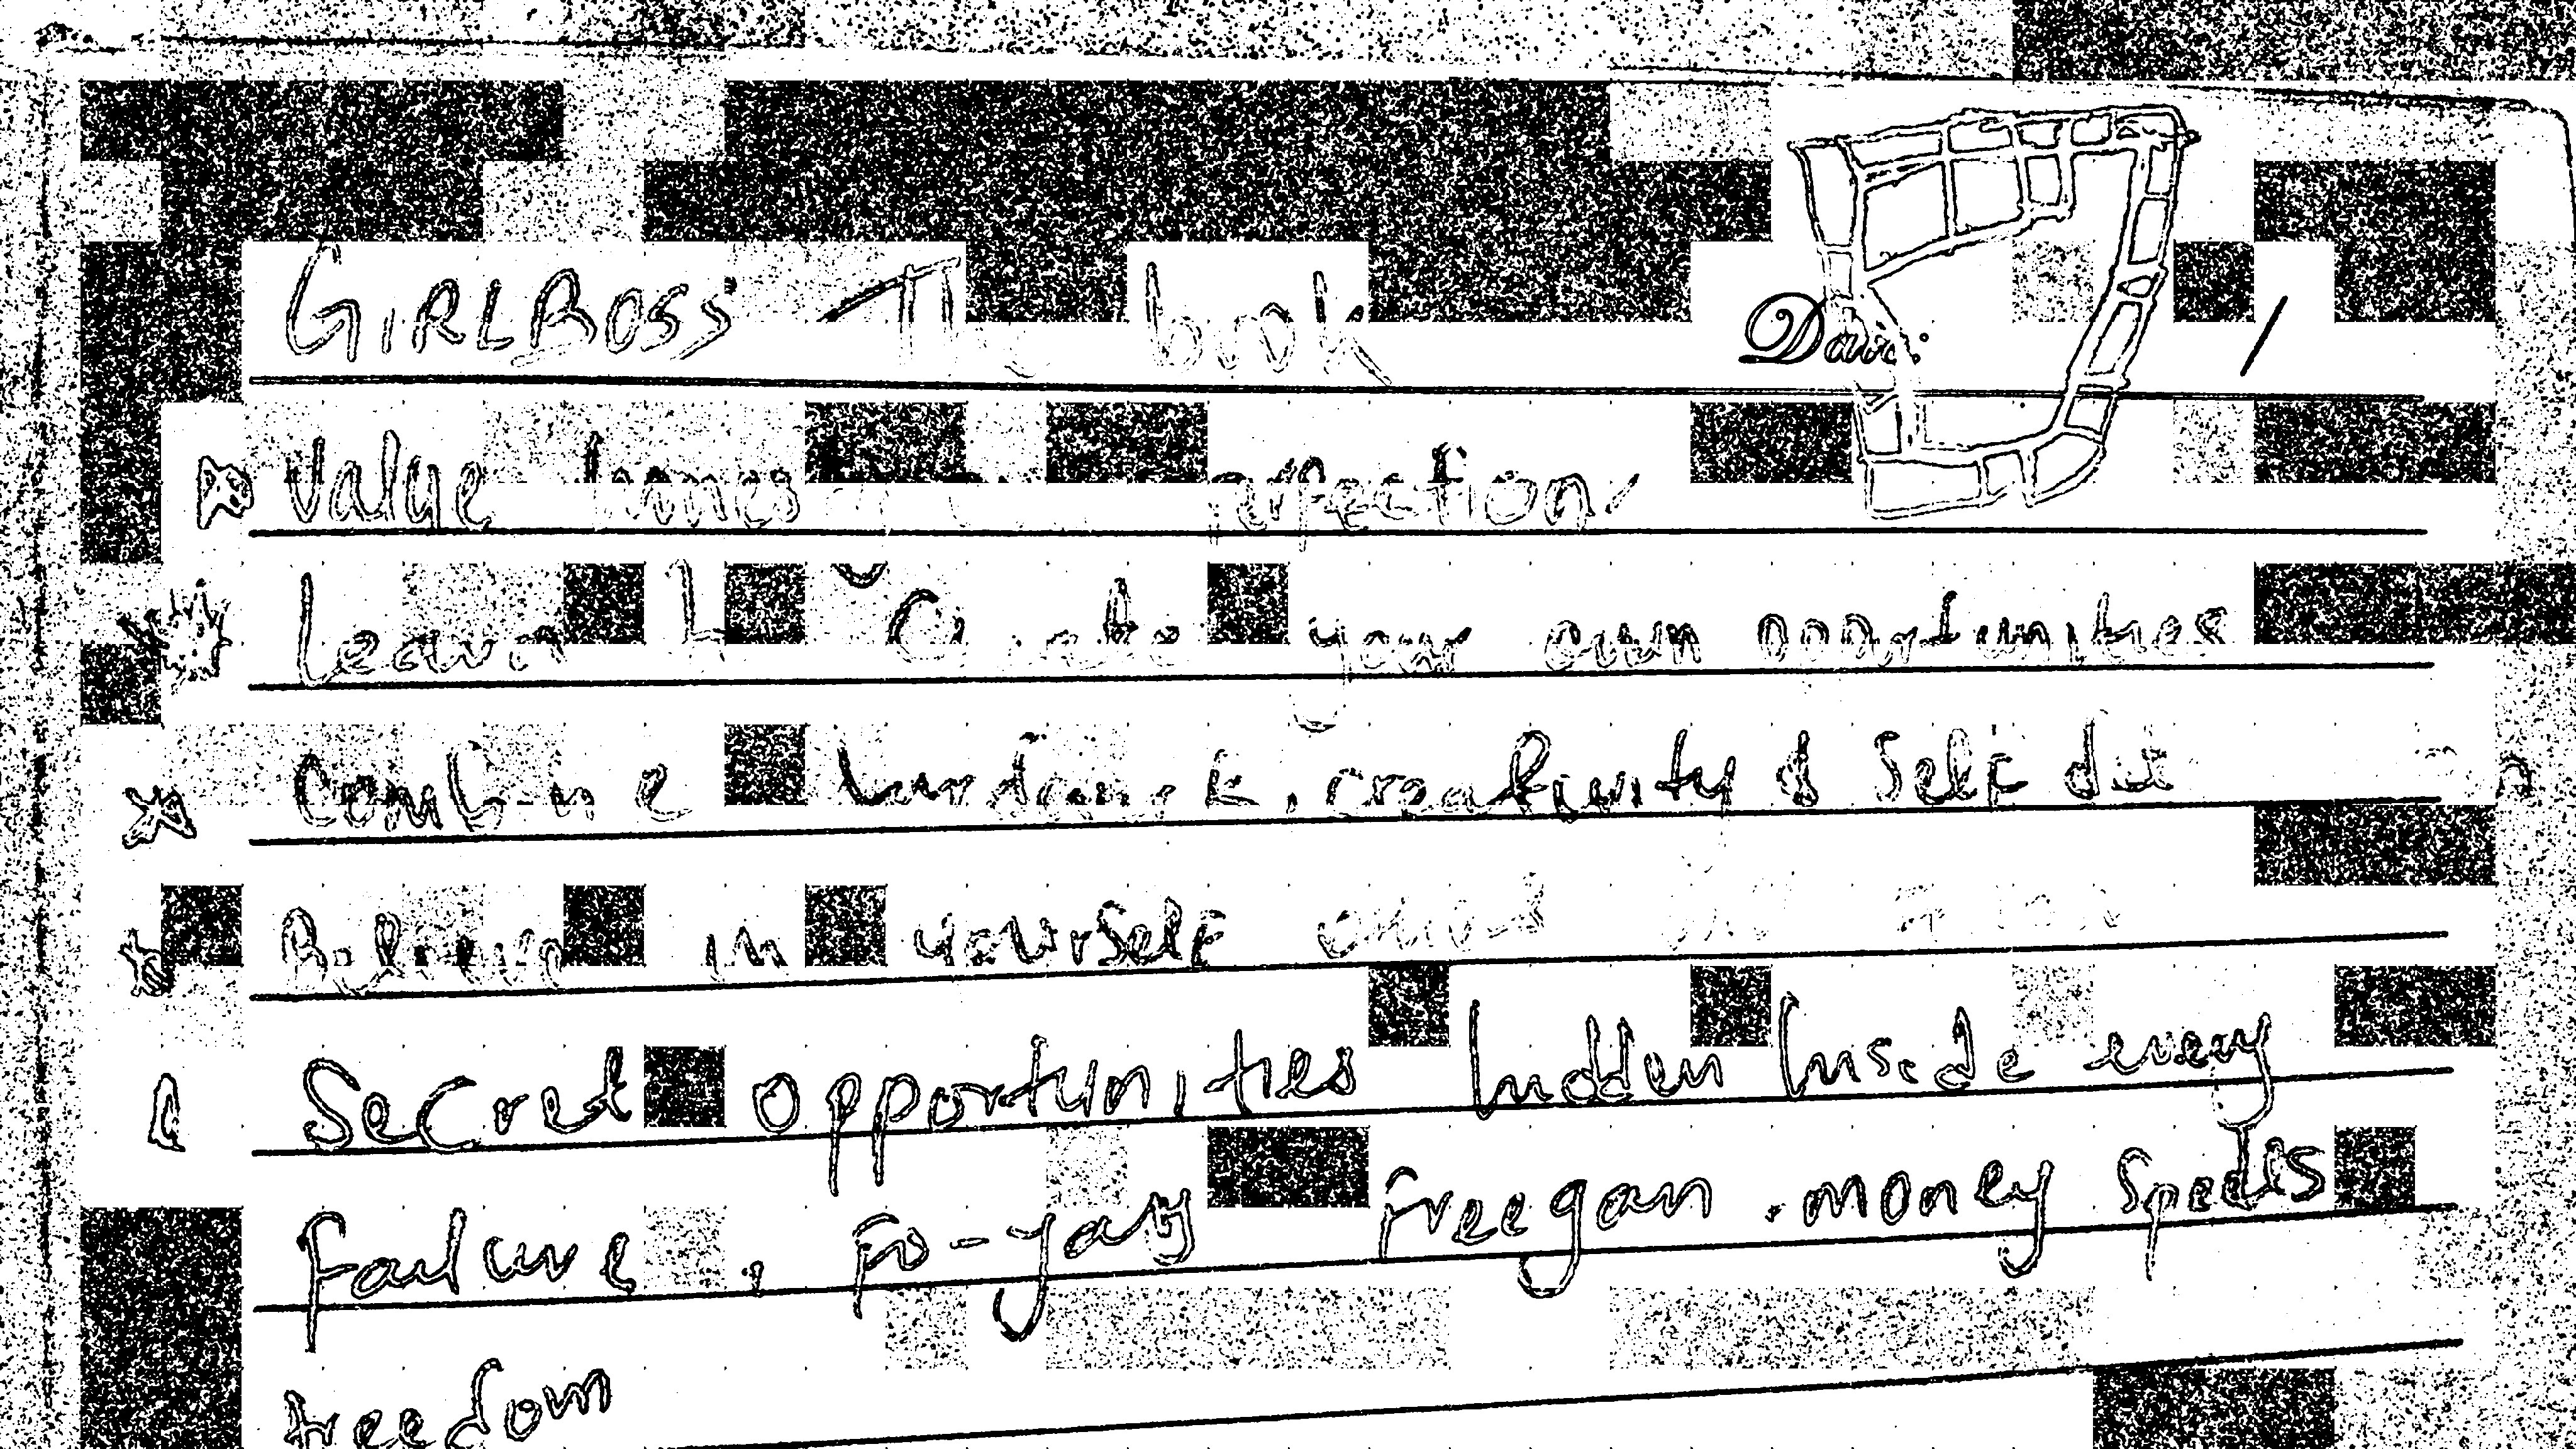 GIRLBOSS The book
Date: /
Value
Learn Create your own opportunities
Combine creativity & self
Believe in yourself and
Secret opportunities hidden Inside every
failure. Fo-yay freegan. money spells
freedom